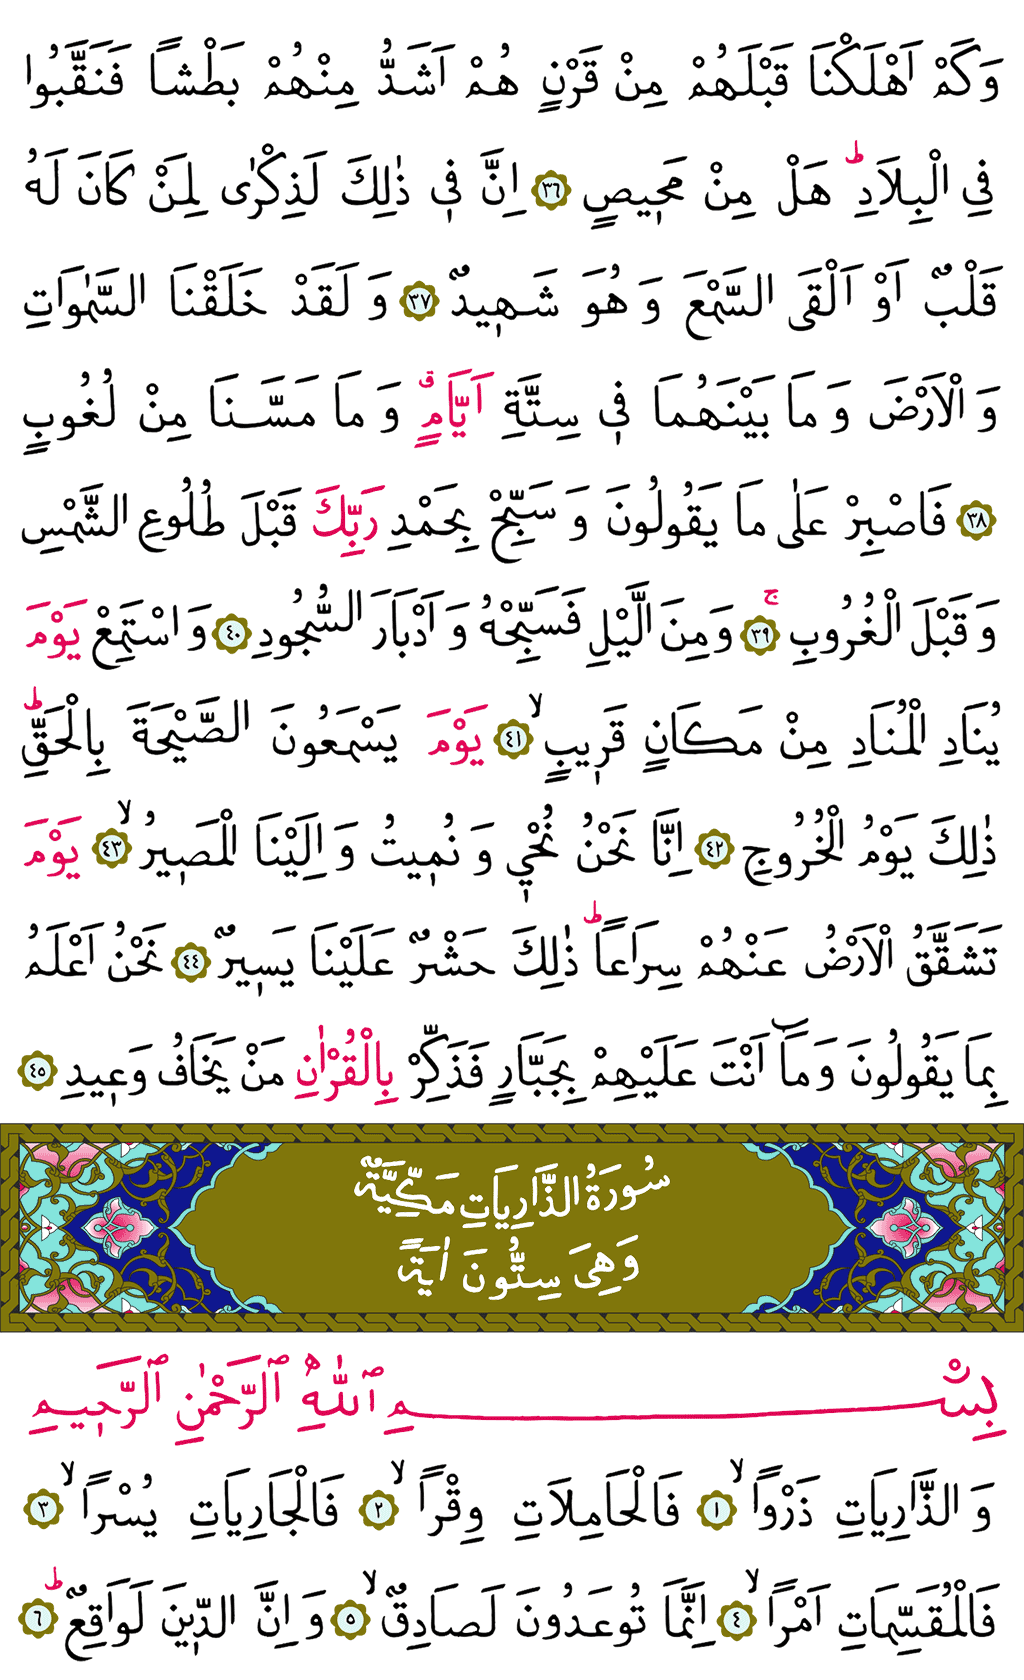 وَكَمْ اَهْلَكْنَا قَبْلَهُمْ مِنْ قَرْنٍ هُمْ اَشَدُّ مِنْهُمْ بَطْشاً فَنَقَّبُوا
فِي الْبِلَادِۜ هَلْ مِنْ مَح۪يصٍ ﴿٣٦﴾ اِنَّ ف۪ي ذٰلِكَ لَذِكْرٰى لِمَنْ كَانَ لَهُ
قَلْبٌ اَوْ اَلْقَى السَّمْعَ وَهُوَ شَه۪يدٌ ﴿٣٧﴾ وَلَقَدْ خَلَقْنَا السَّمٰوَاتِ
وَالْاَرْضَ وَمَا بَيْنَهُمَا ف۪ي سِتَّةِ اَيَّامٍۗ وَمَا مَسَّنَا مِنْ لُغُوبٍ
﴿٣٨﴾ فَاصْبِرْ عَلٰى مَا يَقُولُونَ وَسَبِّحْ بِحَمْدِ رَبِّكَ قَبْلَ طُلُوعِ الشَّمْسِ
وَقَبْلَ الْغُرُوبِۚ ﴿٣٩﴾ وَمِنَ الَّيْلِ فَسَبِّحْهُ وَاَدْبَارَ السُّجُودِ ﴿٤٠﴾ وَاسْتَمِعْ يَوْمَ
يُنَادِ الْمُنَادِ مِنْ مَكَانٍ قَر۪يبٍۙ ﴿٤١﴾ يَوْمَ يَسْمَعُونَ الصَّيْحَةَ بِالْحَقِّۜ
ذٰلِكَ يَوْمُ الْخُرُوجِ ﴿٤٢﴾ اِنَّا نَحْنُ نُحْي۪ وَنُم۪يتُ وَاِلَيْنَا الْمَص۪يرُۙ ﴿٤٣﴾ يَوْمَ
تَشَقَّقُ الْاَرْضُ عَنْهُمْ سِرَاعاًۜ ذٰلِكَ حَشْرٌ عَلَيْنَا يَس۪يرٌ ﴿٤٤﴾ نَحْنُ اَعْلَمُ
بِمَا يَقُولُونَ وَمَٓا اَنْتَ عَلَيْهِمْ بِجَبَّارٍ فَذَكِّرْ بِالْقُرْاٰنِ مَنْ يَخَافُ وَع۪يدِ ﴿٤٥﴾
سُورَةُ الذَّارِيَاتِ مَكِّيَّةٌ
وَهِىَ سِتُّونَ اٰيَةً
بِسْمِ ٱللّٰهِ ٱلرَّحْمٰنِ ٱلرَّح۪يمِ
وَالذَّارِيَاتِ ذَرْواًۙ ﴿١﴾ فَالْحَامِلَاتِ وِقْراًۙ ﴿٢﴾ فَالْجَارِيَاتِ يُسْراًۙ ﴿٣﴾
فَالْمُقَسِّمَاتِ اَمْراًۙ ﴿٤﴾ اِنَّمَا تُوعَدُونَ لَصَادِقٌۙ ﴿٥﴾ وَاِنَّ الدّ۪ينَ لَوَاقِعٌۜ ﴿٦﴾